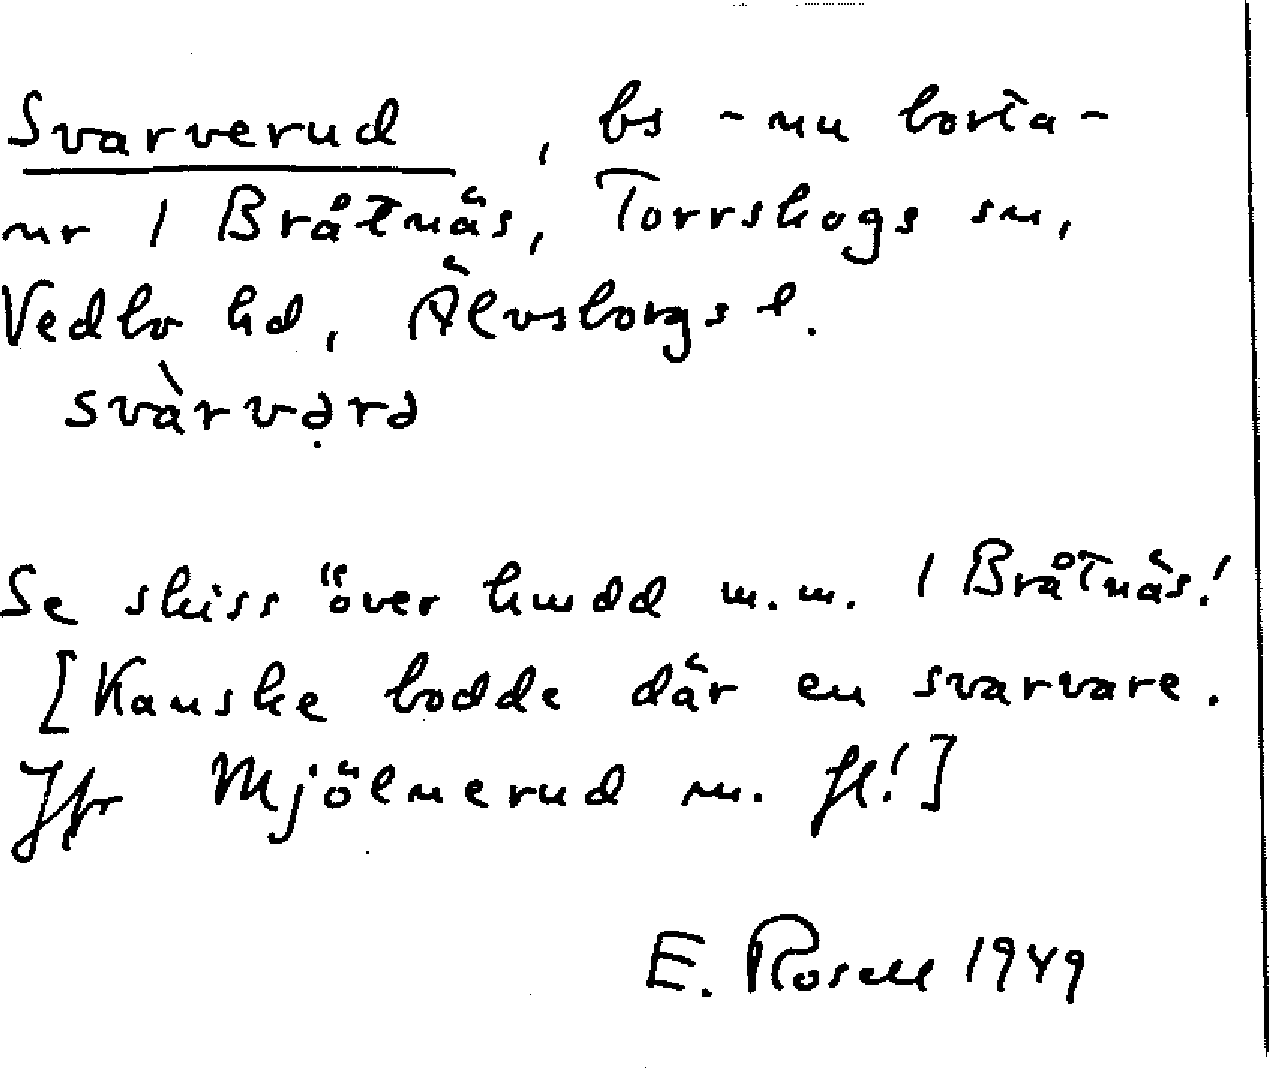 Svarverud, bs - nu borta -
nr 1 Bråtnäs, Torrskogs sn,
Vedbo hd, Älvsborgs l.
svàrvə̣rə
Se skiss över hmdd m.m. 1 Bråtnäs!
[Kanske bodde där en svarvare.
Jfr Mjölnerud m. fl!]
E. Rosell 1949